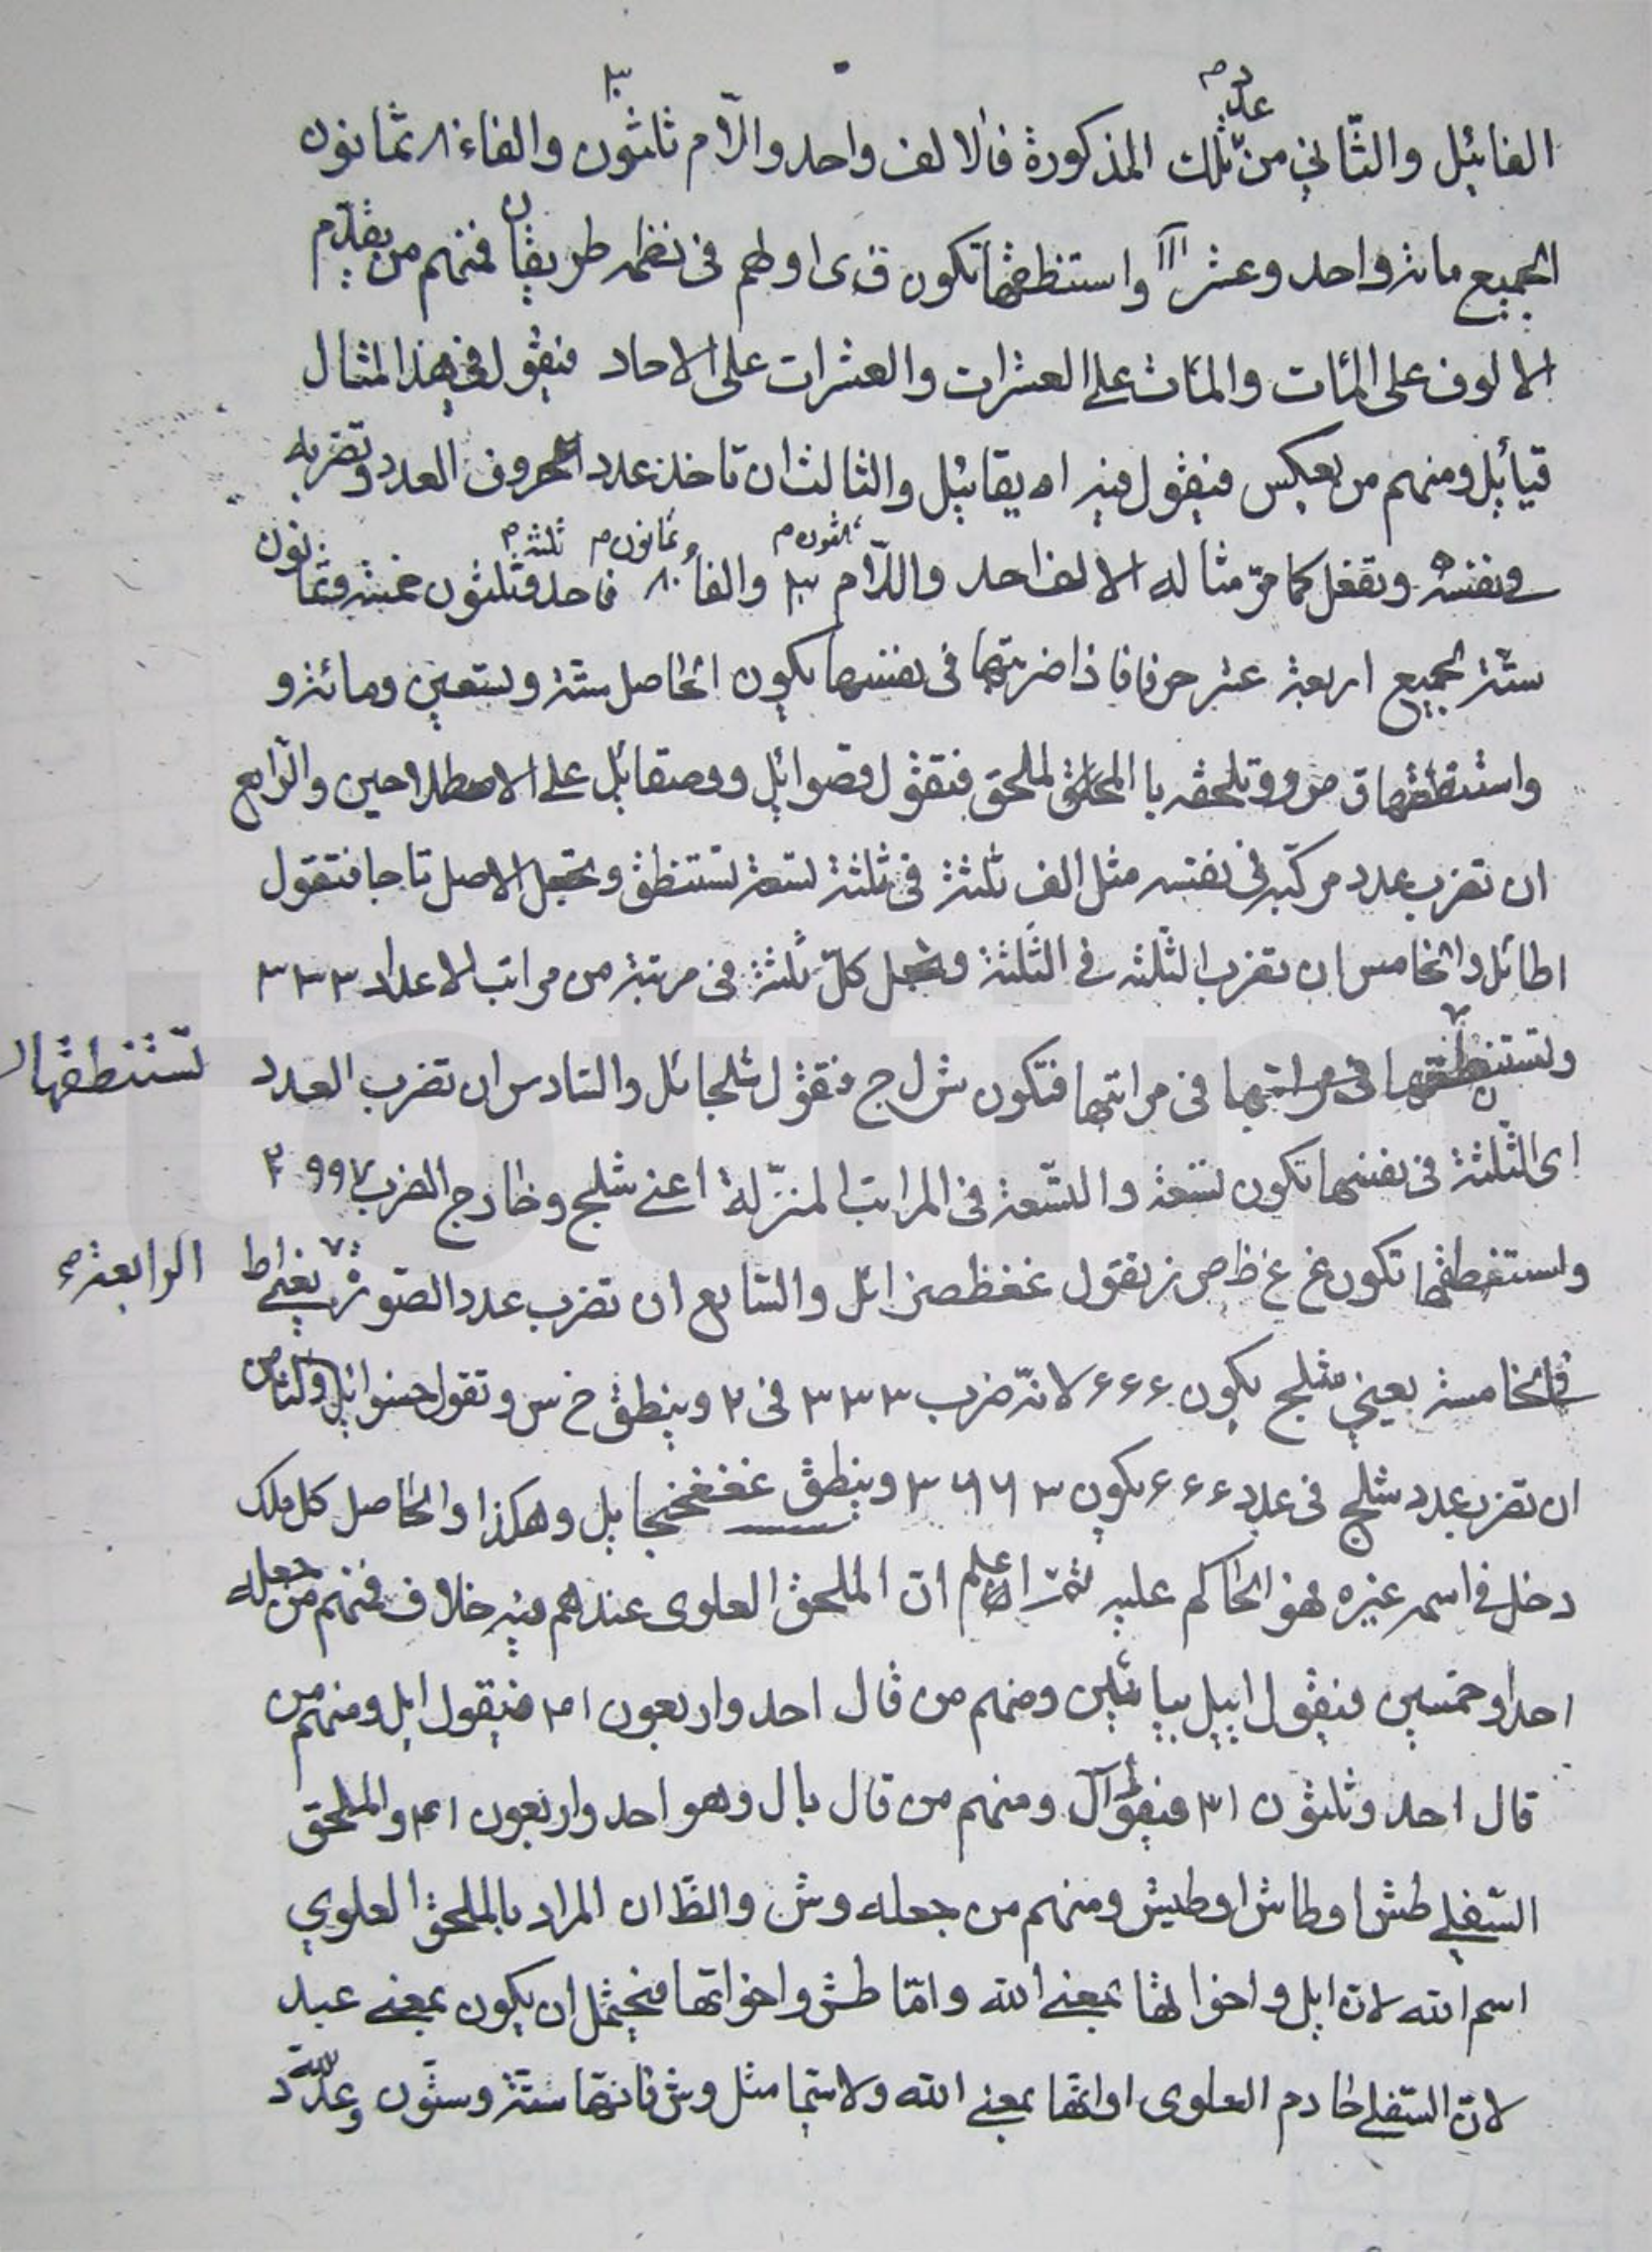 الفائيل والثاني من عدد تلك المذكورة فالالف واحد واللام ثلثون ٣٠ والفاء ٨٠ ثمانون
الجميع مائة واحد وعشر ١١١ واستنطقها تكون ق ى ا ولهم فى نظمه طريقان فمنهم من يقدّم
الالوف على المئات والمئات على العشرات والعشرات على الاحاد فيقول في هذا المثال
قيائيل ومنهم من يعكس فيقول فيه ايقائيل والثالث ان تاخذ عدد الحروف العدد وتضربه
في نفسه وتفعل كما مرّ مثاله الالف احد واللّام ٣٠ ثلثون والفاء ٨٠ ثمانون فاحد ثلثة وثلثون خمسة وثمانون
ستة الجميع اربعة عشر حرفا فاذا ضربتها فى نفسها يكون الحاصل ستة وتسعين ومائة و
واستنطقها ق ص و وتلحقه با الملحق فتقول قصوائل ووصقائل على الاصطلاحين والرّابع
ان تضرب عدد مركبه فى نفسه مثل الف ثلثة فى ثلثة تسعة تستنطق وتجعل الاصل تاجا فتقول
اطائل والخامس ان تضرب الثلثه في الثلثة وتجعل كلّ ثلثة فى مرتبة من مراتب الاعداد ٣٣٣
وتستنطقها فى مراتبها فى مراتبها فتكون ش ل ج فتقول شلجائل والسادس ان تضرب العدد
تستنطقها
اى الثلثة فى نفسها تكون تسعة والتسعة فى المراتب المنزّلة اعنى شلج وخارج الضرب ٢٩٩٧
واستنطقها تكون غ غ ظ ص ز تقول غغظصزائل والسابع ان تضرب عدد الصورة يعنى ط
الرابعة
في الخامسة يعني شلج يكون ۶۶۶ لانّه ضرب ٣٣٣ فى ٢ وينطق خ س و تقول خسوائيل والثامن
ان تضرب عدد شلج فى عدد ۶۶۶ يكون ٣٦٦٣ وينطق غغغخجايل وهكذا والحاصل كل ملك
دخل في اسمه غيره فهو الحاكم عليه ثمّ اعلم انّ الملحق العلوى عندهم فيه خلاف فمنهم من جعله
احدا وخمسين فيقول ائيل بيائين ومنهم من قال احد واربعون ٤١ فيقول ايل ومنهم من
قال احد وثلثون ٣١ فيقول آل ومنهم من قال يال وهو احد واربعون ٤١ والملحق
السّفلي طش او طاش او طيش ومنهم من جعله وش والظّ ان المراد بالملحق العلوي
اسم الله لانّ ايل واخواتها بمعنى الله وامّا طش واخواتها فيحتمل ان يكون بمعنى عبد
لانّ السّفلي خادم العلوى او انّها بمعنى الله ولا سيّما مثل وش فانّها ستّة وستّون وعدد